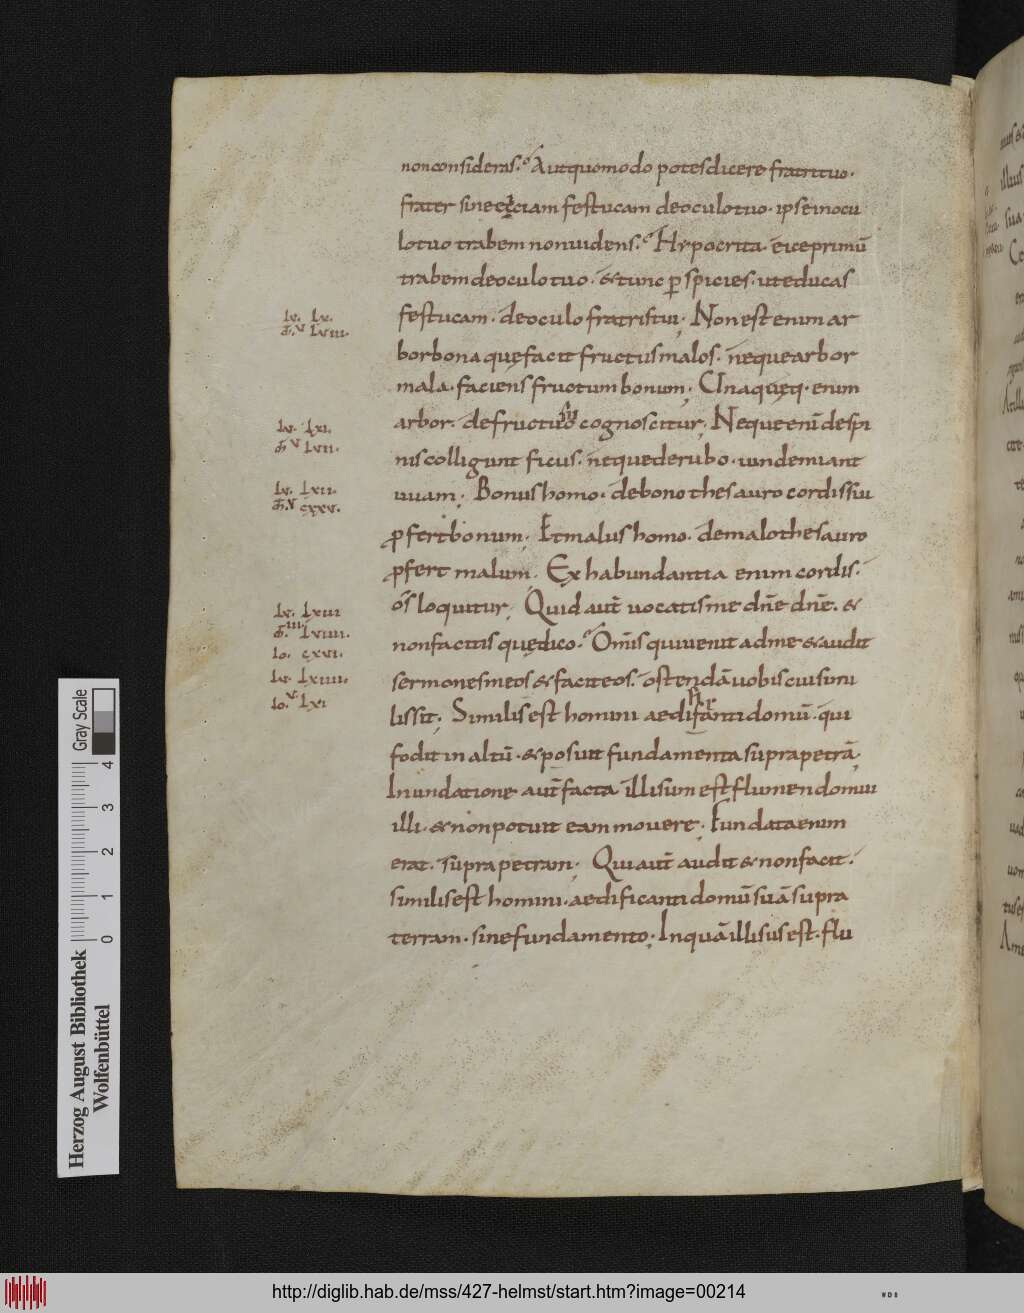 non consideras. Aut quomodo potes dicere fratri tuo.
frater sine eiciam festucam de oculo tuo. ipse in ocu
lo tuo trabem non uidens. Hypocrita. eice primū
trabem de oculo tuo. & tunc p̱spicies. ut educas
festucam. de oculo fratris tui; Non est enim ar
lu. lx.
m̄. v lviii.
bor bona quę facit fructus malos. neque arbor
mala. faciens fructum bonum; Unaquęq. enim
arbor. de fructu suo cognoscitur; Neque enī de spi
lu. lxi.
m̄. v lvii.
nis colligunt ficus. neque de rubo. uindemiant
uuam; Bonus homo. de bono thesauro cordis sui
lu. lxii.
m̄. v cxxv.
ꝓfert bonum; Et malus homo. de malo thesauro
ꝓfert malum; Ex habundantia enim cordis.
os̄ loquitur; Quid aut̄ uocatis me dn̄e dn̄e. &
lu. lxiii
m̄. iii lviiii.
non facitis quę dico. Om̄is qui uenit ad me & audit
io. cxvi.
sermones meos & facit eos. ostendā uobis cui simi
lu. lxiiii.
lis sit; Similis est homini aedificanti domū. qui
io. v. lxi
fodit in altū. & posuit fundamenta supra petrā;
Inundatione aut̄ facta illisum est flumen domui
illi. & non potuit eam mouere; Fundata enim
erat. supra petram; Qui aut̄ audit & non facit.
similis est homini. aedificanti domū suā supra
terram. sine fundamento; In quā illisus est. flu
Gray Scale
0 1 2 3 4
Herzog August Bibliothek
Wolfenbüttel
http://diglib.hab.de/mss/427-helmst/start.htm?image=00214